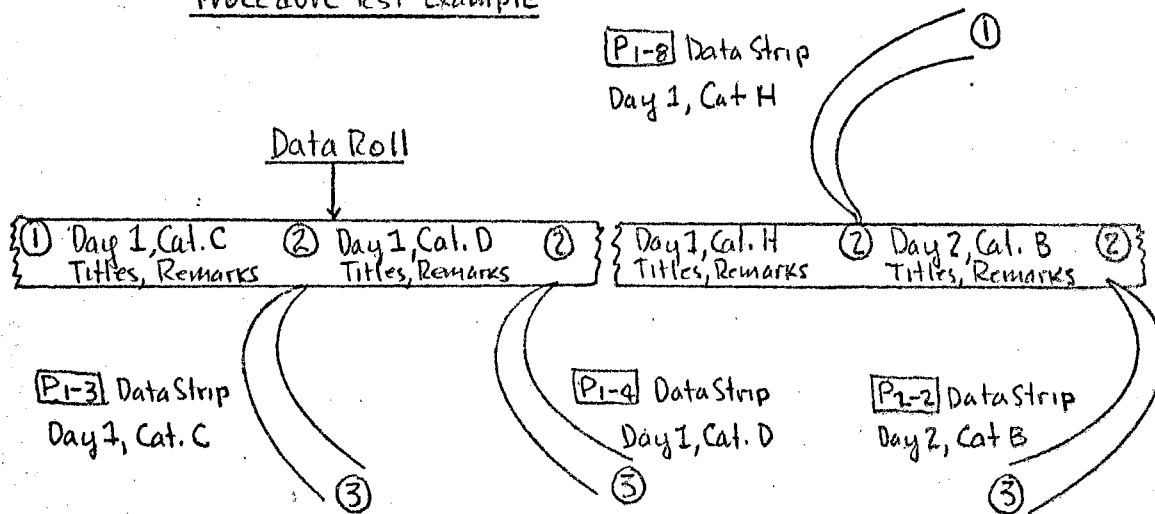 Procedure Test Example
P1-8 Data Strip
Day 1, Cat H
①
Data Roll
① Day 1, Cal. C ② Day 1, Cal. D ②
Titles, Remarks Titles, Remarks
Day 1, Cal. H ② Day 2, Cal. B ②
Titles, Remarks Titles, Remarks
P1-3 Data Strip
Day 1, Cat. C
③
P1-4 Data Strip
Day 1, Cal. D
③
P2-2 Data Strip
Day 2, Cat B
③